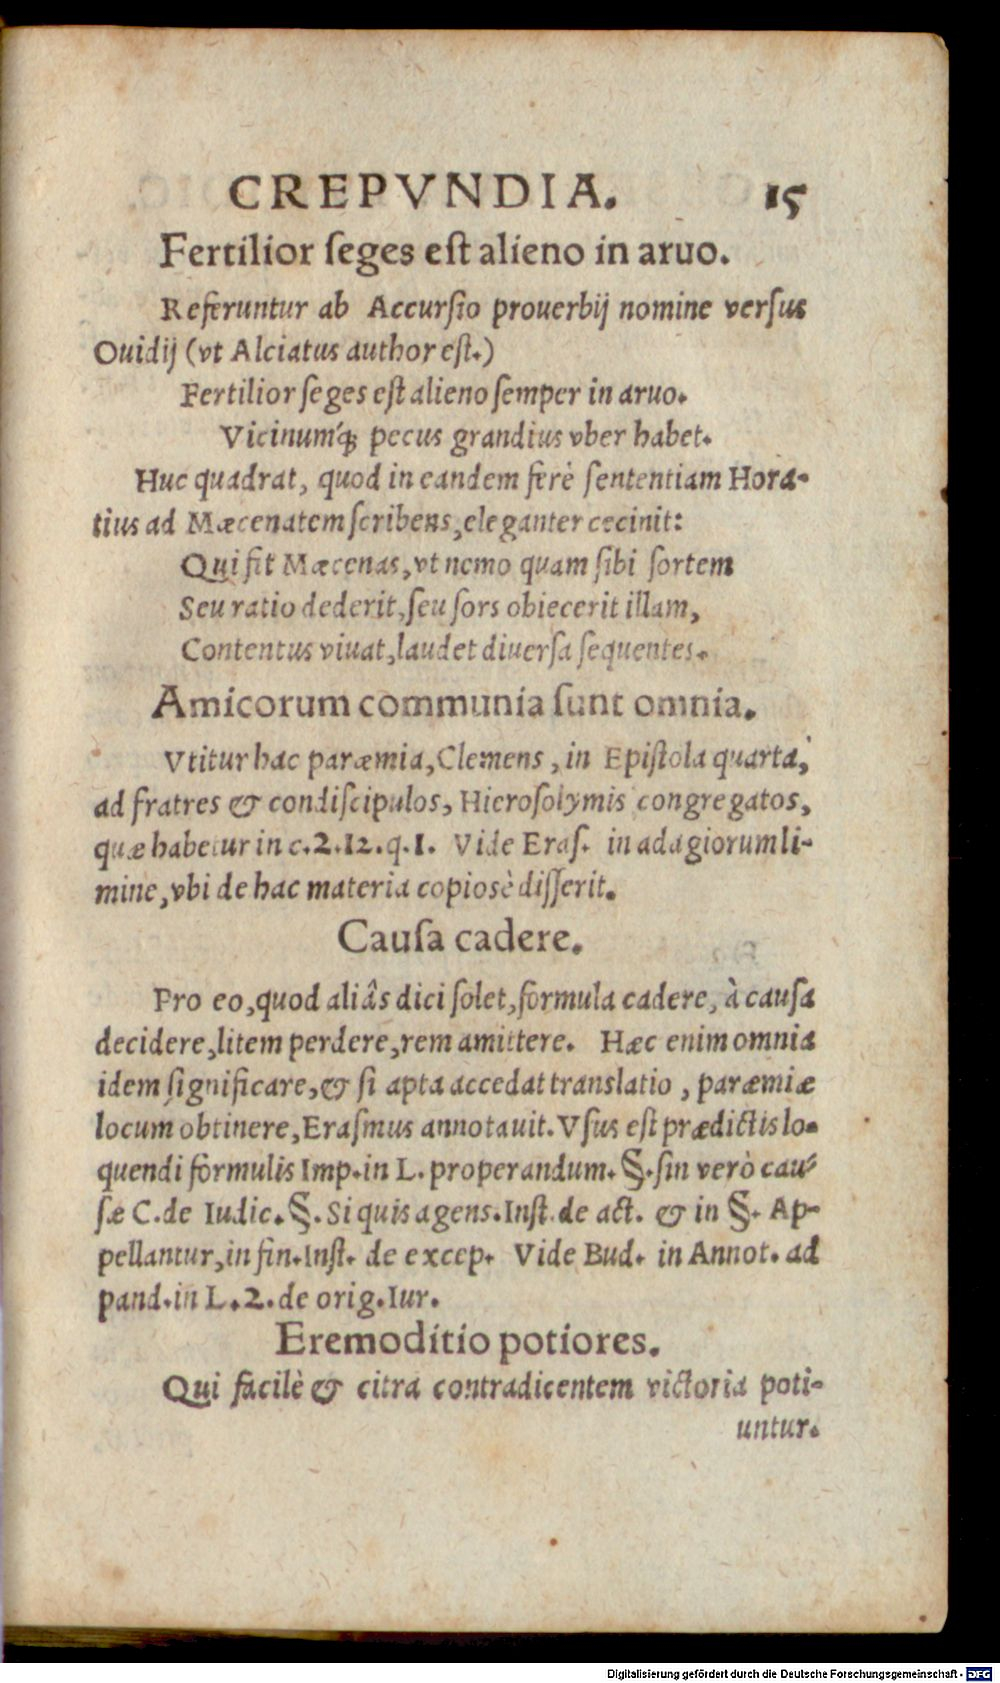 CREPVNDIA. 15
Fertilior ſeges eſt alieno in aruo.
Referuntur ab Accurſio prouerbij nomine verſus
Ouidij (vt Alciatus author eſt.)
Fertilior ſeges eſt alieno ſemper in aruo.
Vicinumq́ꝫ pecus grandius vber habet.
Huc quadrat, quod in eandem ferè ſententiam Hora-
tius ad Mæcenatem ſcribens, eleganter cecinit:
Qui fit Mæcenas, vt nemo quam ſibi ſortem
Seu ratio dederit, ſeu ſors obiecerit illam,
Contentus viuat, laudet diuerſa ſequentes.
Amicorum communia ſunt omnia.
Vtitur hac paræmia, Clemens, in Epiſtola quarta,
ad fratres & condiſcipulos, Hieroſolymis congregatos,
quæ habetur in c.2.12.q.1. Vide Eraſ. in adagiorum li-
mine, vbi de hac materia copiosè diſſerit.
Cauſa cadere.
Pro eo, quod aliâs dici ſolet, formula cadere, à cauſa
decidere, litem perdere, rem amittere. Hæc enim omnia
idem ſignificare, & ſi apta accedat translatio, paræmiæ
locum obtinere, Eraſmus annotauit. Vſus eſt prædictis lo-
quendi formulis Imp. in L. properandum. §. ſin verò cau-
ſæ C. de Iudic. §. Si quis agens. Inſt. de act. & in §. Ap-
pellantur, in fin. Inſt. de excep. Vide Bud. in Annot. ad
pand. in L. 2. de orig. Iur.
Eremoditio potiores.
Qui facilè & citra contradicentem victoria poti-
untur.
Digitalisierung gefördert durch die Deutsche Forschungsgemeinschaft - DFG